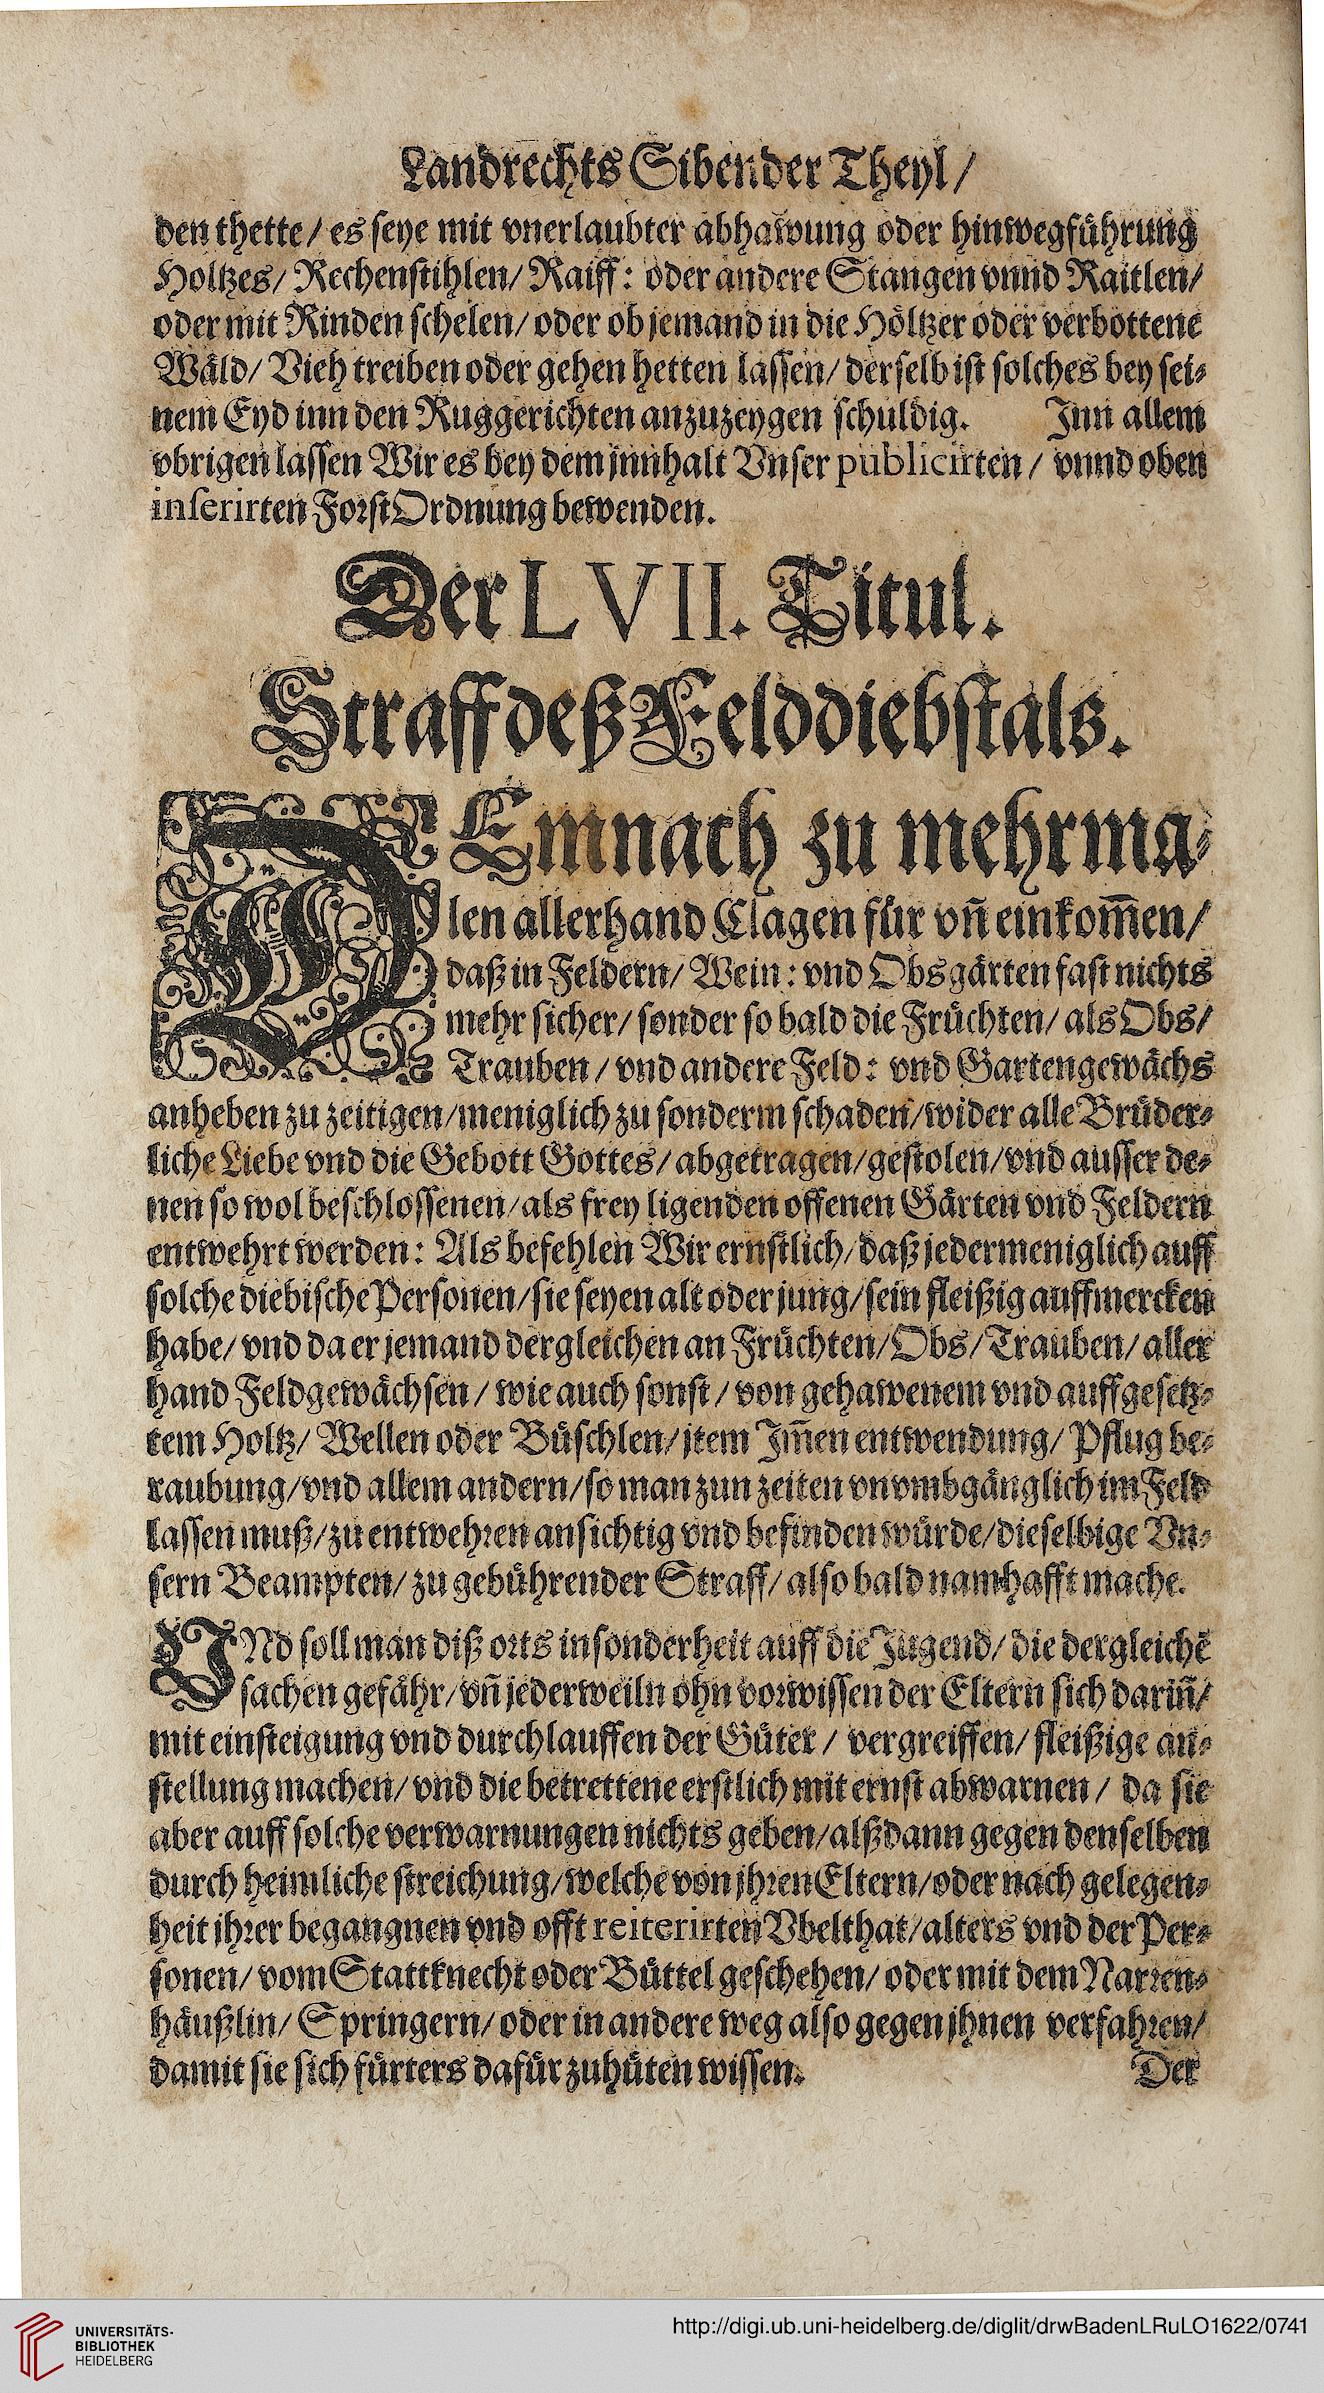 Landrechts Sibender Theyl /
den thette / es seye mit vnerlaubter abhawung oder hinwegführung
Holtzes / Rechenstihlen / Raiff: oder andere Stangen vnnd Raitlen /
oder mit Rinden schelen / oder ob jemand in die Höltzer oder verbottene
Wäld / Vieh treiben oder gehen hetten lassen / derselb ist solches bey sei-
nem Eyd inn den Ruggerichten anzuzeygen schuldig. Inn allem
vbrigen lassen Wir es bey dem jnnhalt Vnser publicirten / vnnd oben
inserirten ForstOrdnung bewenden.
Der LVII. Titul.
Straff deß Felddiebstals.
DEmnach zu mehrma-
len allerhand Clagen für vn̄ einkom̄en /
daß in Feldern / Wein: vnd Obsgärten fast nichts
mehr sicher / sonder so bald die Früchten / als Obs /
Trauben / vnd andere Feld: vnd Gartengewächs
anheben zu zeitigen / meniglich zu sonderm schaden / wider alle Brüder-
liche Liebe vnd die Gebott Gottes / abgetragen / gestolen / vnd ausser de-
nen so wol beschlossenen / als frey ligenden offenen Gärten vnd Feldern
entwehrt werden: Als befehlen Wir ernstlich / daß jedermeniglich auff
solche diebische Personen / sie seyen alt oder jung / sein fleißig auffmercken
habe / vnd da er jemand dergleichen an Früchten / Obs / Trauben / aller
hand Feldgewächsen / wie auch sonst / von gehawenem vnd auffgesetz-
tem Holtz / Wellen oder Büschlen / jtem Im̄en entwendung / Pflug be-
raubung / vnd allem andern / so man zun zeiten vnvmbgänglich im Feld
lassen muß / zu entwehren ansichtig vnd befinden würde / dieselbige Vn-
sern Beampten / zu gebührender Straff / also bald namhafft mache.
VNd soll man diß orts insonderheit auff die Jugend / die dergleichē
sachen gefähr / vn̄ jederweiln ohn vorwissen der Eltern sich darin̄ /
mit einsteigung vnd durchlauffen der Güter / vergreiffen / fleißige an-
stellung machen / vnd die betrettene erstlich mit ernst abwarnen / da sie
aber auff solche verwarnungen nichts geben / alßdann gegen denselben
durch heimliche streichung / welche von jhren Eltern / oder nach gelegen-
heit ihrer begangnen vnd offt reiterirten Vbelthat / alters vnd der Per-
sonen / vom Stattknecht oder Büttel geschehen / oder mit dem Narren-
häußlin / Springern / oder in andere weg also gegen jhnen verfahren /
damit sie sich fürters dafür zuhüten wissen. Der
UNIVERSITÄTS-
BIBLIOTHEK
HEIDELBERG
http://digi.ub.uni-heidelberg.de/diglit/drwBadenLRuLO1622/0741